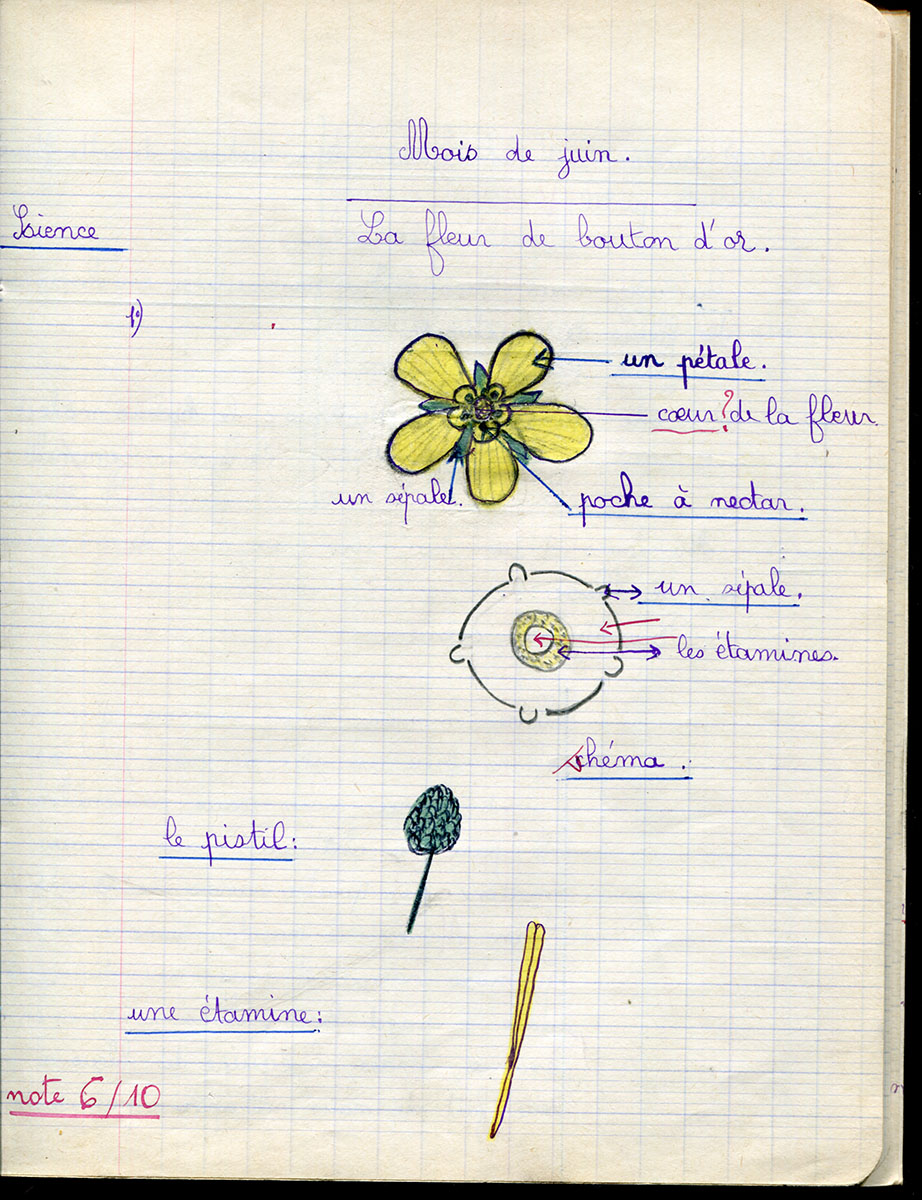 Mois de juin.
Sience
La fleur de bouton d'or.
1°)
un pétale.
cœur ? de la fleur
un sépale.
poche à nectar.
un sépale.
les étamines.
schéma :
le pistil :
une étamine :
note 6/10